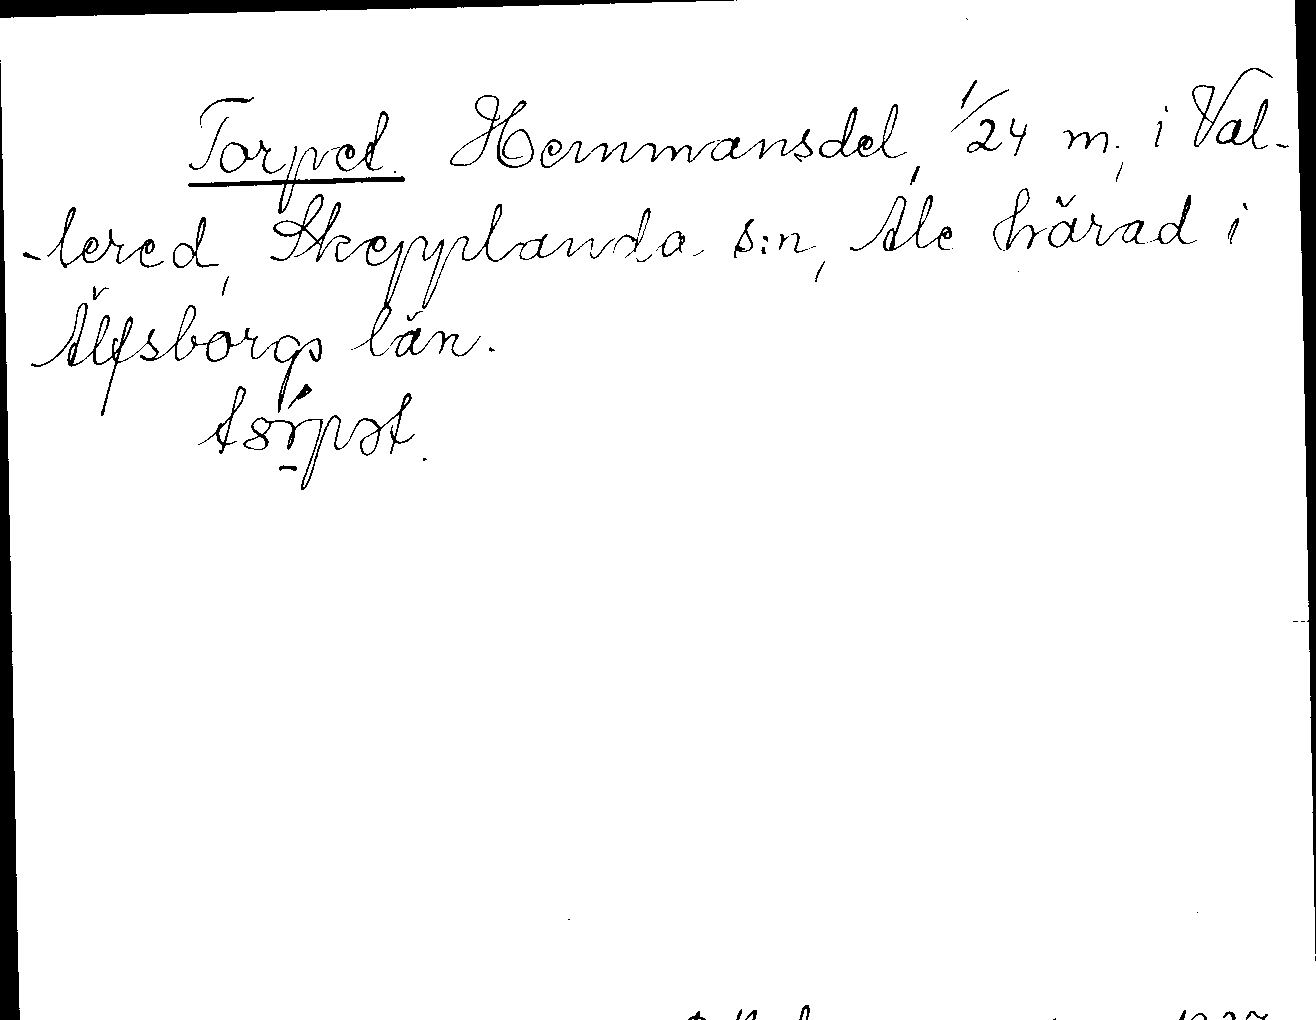 Torpet. Hemmansdel, 1/24 m., i Val-
-lered, Skepplanda s:n, Ale härad i
Älfsborgs län.